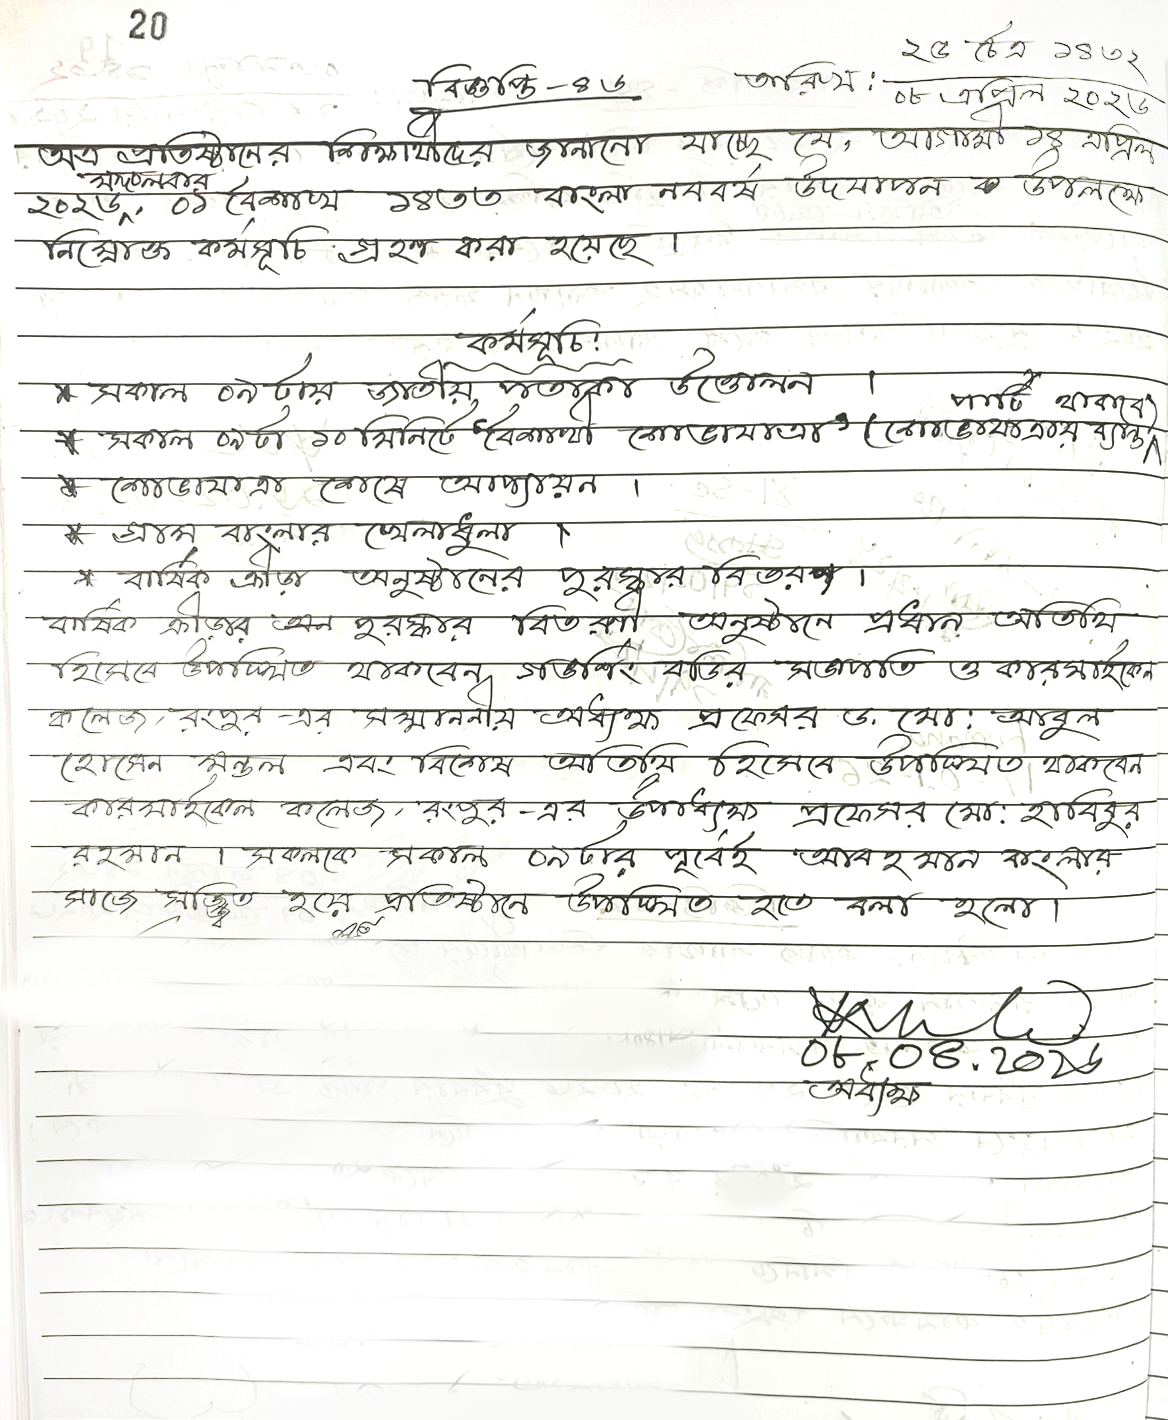 20
২৫ চৈত্র ১৪৩২
বিজ্ঞপ্তি - ৪৬ তারিখ: ০৮ এপ্রিল ২০২৬
অত্র প্রতিষ্ঠানের শিক্ষার্থীদের জানানো যাচ্ছে যে, আগামী ১৪ এপ্রিল
মঙ্গলবার
২০২৬, ০১ বৈশাখ ১৪৩৩ বাংলা নববর্ষ উদযাপন উপলক্ষে
নিম্মোক্ত কর্মসূচি গ্রহণ করা হয়েছে।
কর্মসূচি:
* সকাল ০৯ টায় জাতীয় পতাকা উত্তোলন ।
পার্টি থাকবে)
* সকাল ০৯ টা ১০ মিনিটে 'বৈশাখী শোভাযাত্রা' (শোভাযাত্রায় ব্যান্ড
* শোভাযাত্রা শেষে আপ্যায়ন ।
* গ্রাম বাংলার খেলাধুলা ।
* বার্ষিক ক্রীড়া অনুষ্ঠানের পুরস্কার বিতরণ ।
বার্ষিক ক্রীড়ার পুরস্কার বিতরণী অনুষ্ঠানে প্রধান অতিথি
হিসেবে উপস্থিত থাকবেন গভর্ণিং বডির সভাপতি ও কারমাইকেল
কলেজ, রংপুর -এর সম্মাননীয় অধ্যক্ষ প্রফেসর ড. মো: আবুল
হোসেন মন্ডল এবং বিশেষ অতিথি হিসেবে উপস্থিত থাকবেন
কারমাইকেল কলেজ, রংপুর -এর উপাধ্যক্ষ প্রফেসর মো: হাবিবুর
রহমান । সকলকে সকাল ০৯ টার পূর্বেই আবহমান বাংলার
সাজে সজ্জিত হয়ে প্রতিষ্ঠানে উপস্থিত হতে বলা হলো।
০৮.০৪.২০২৬
অধ্যক্ষ